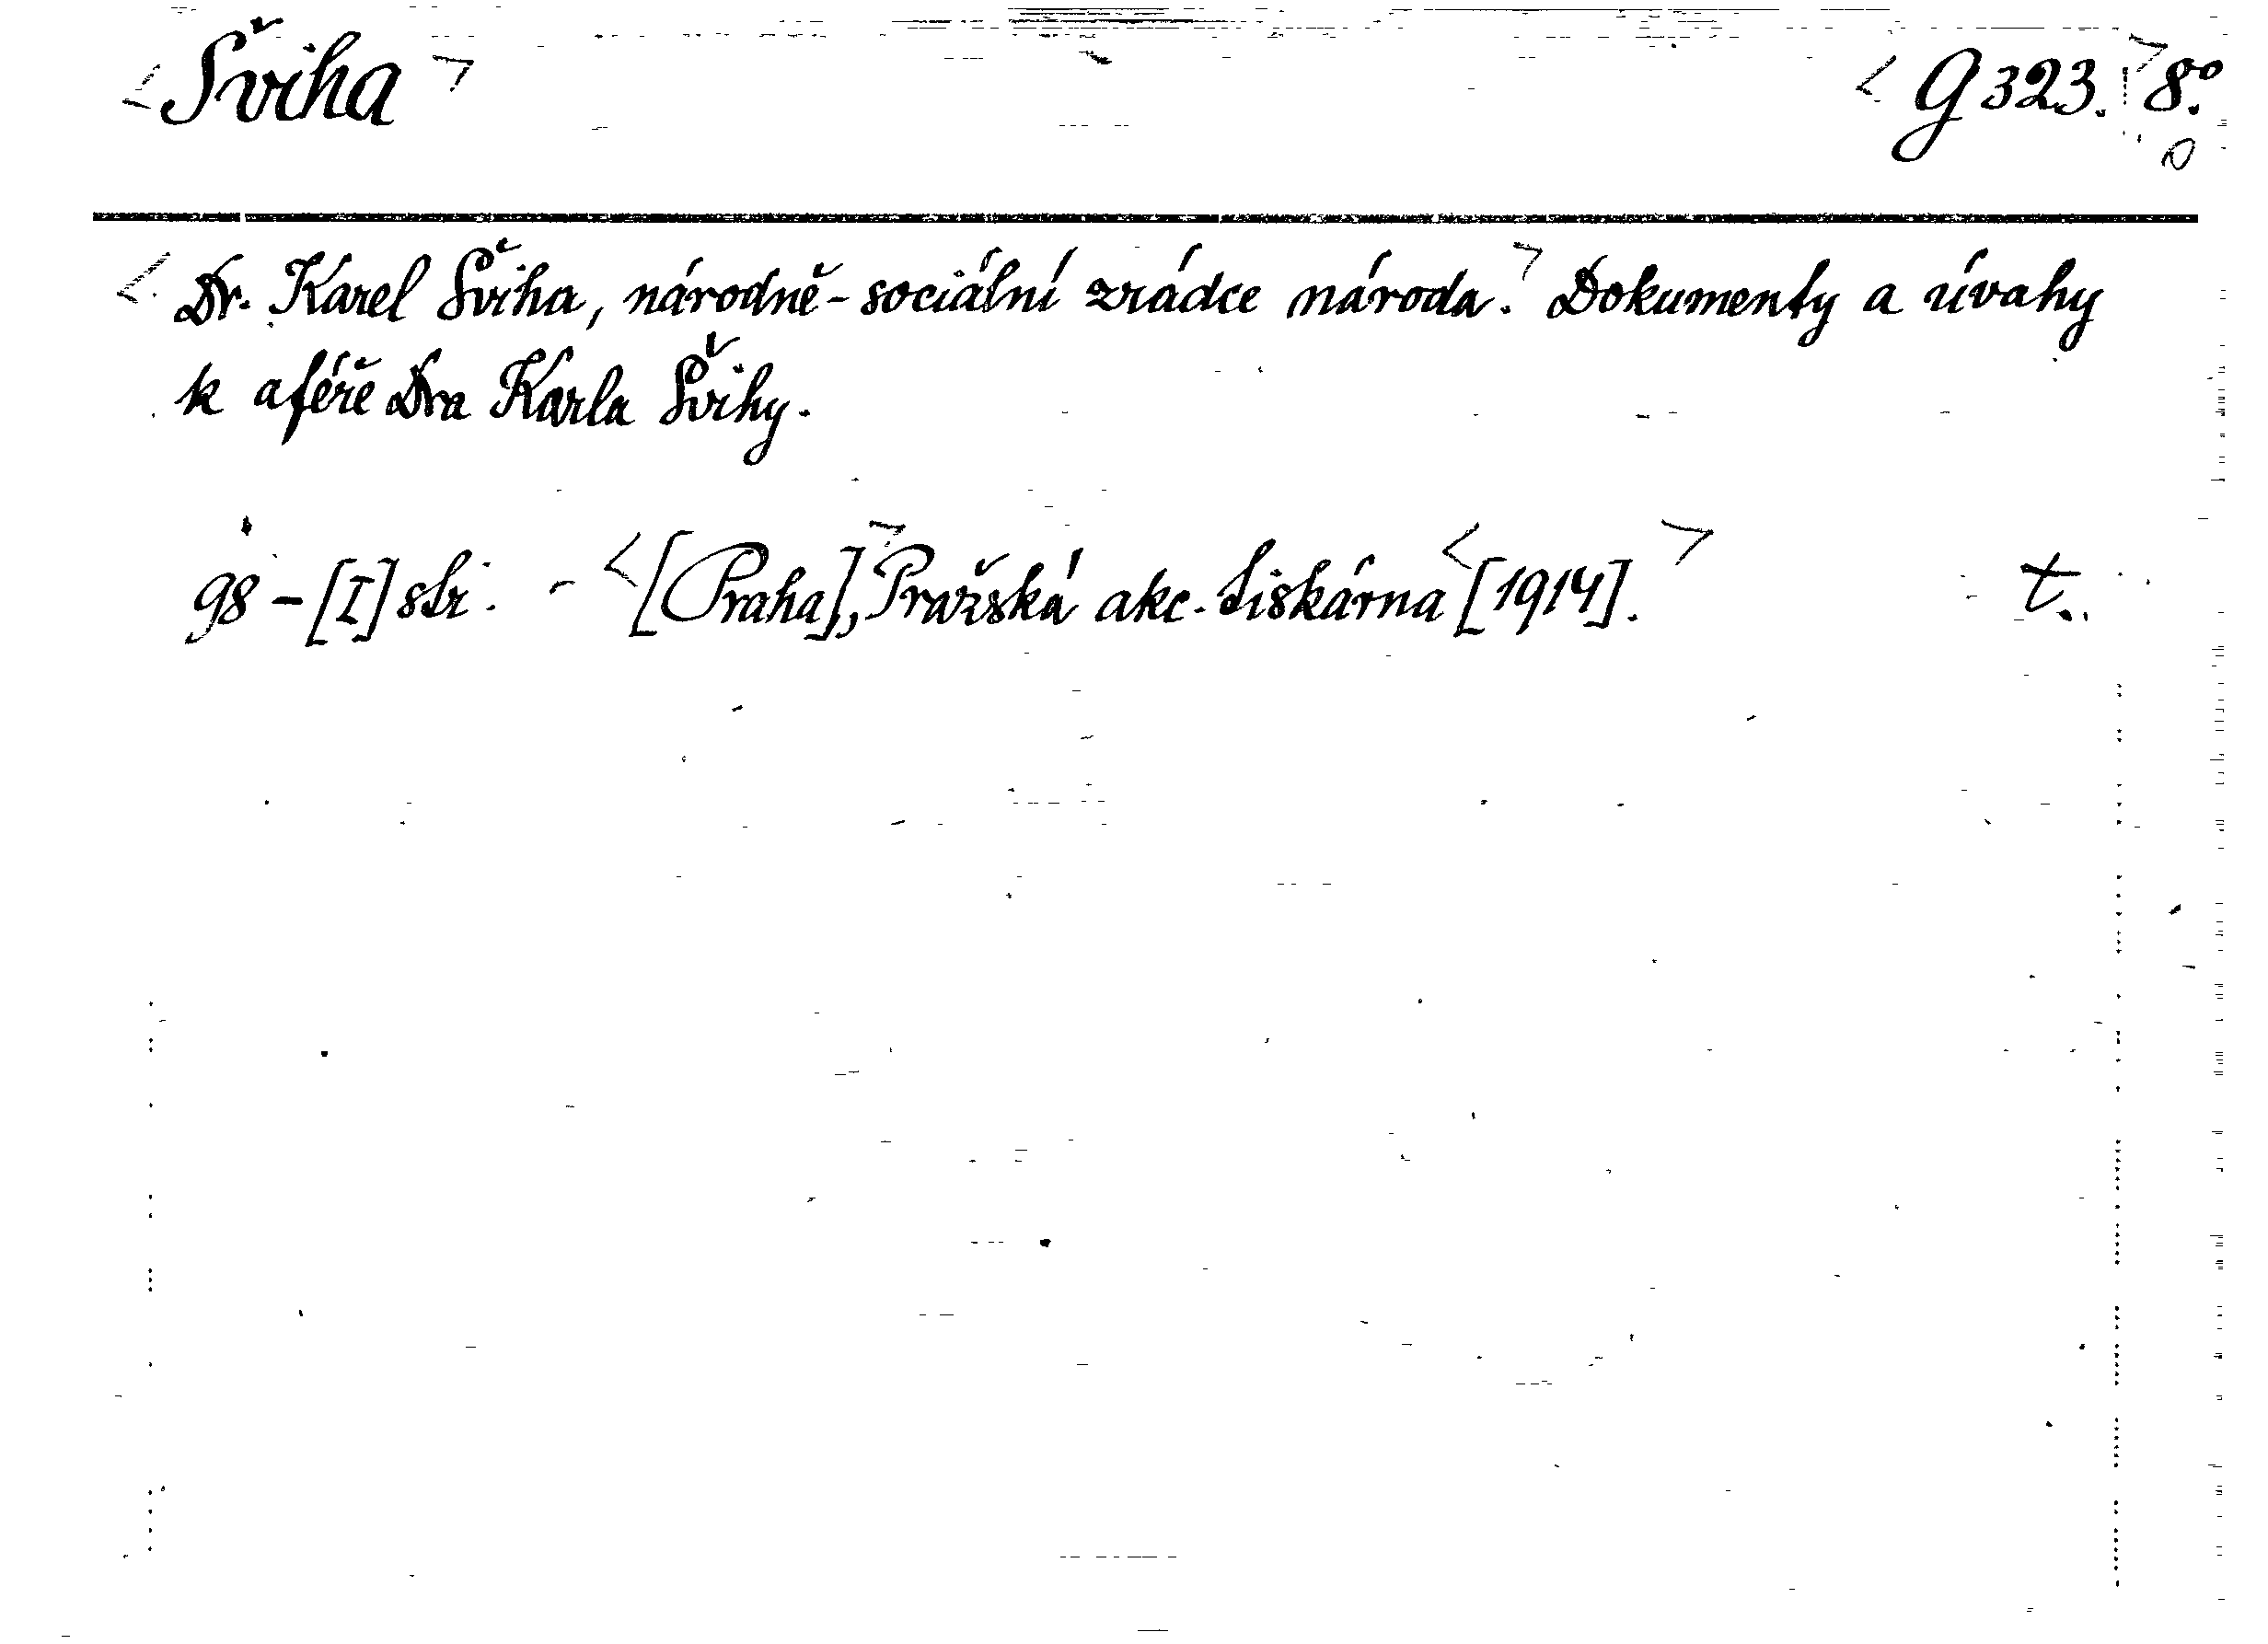 <Šviha> <G 323.> 8.°
<Dr. Karel Šviha, národně-sociální zrádce národa.> Dokumenty a úvahy
k aféře Dra Karla Švihy.
98 - [I] str. - <[Praha],> Pražská akc. tiskárna <[1914].> t.